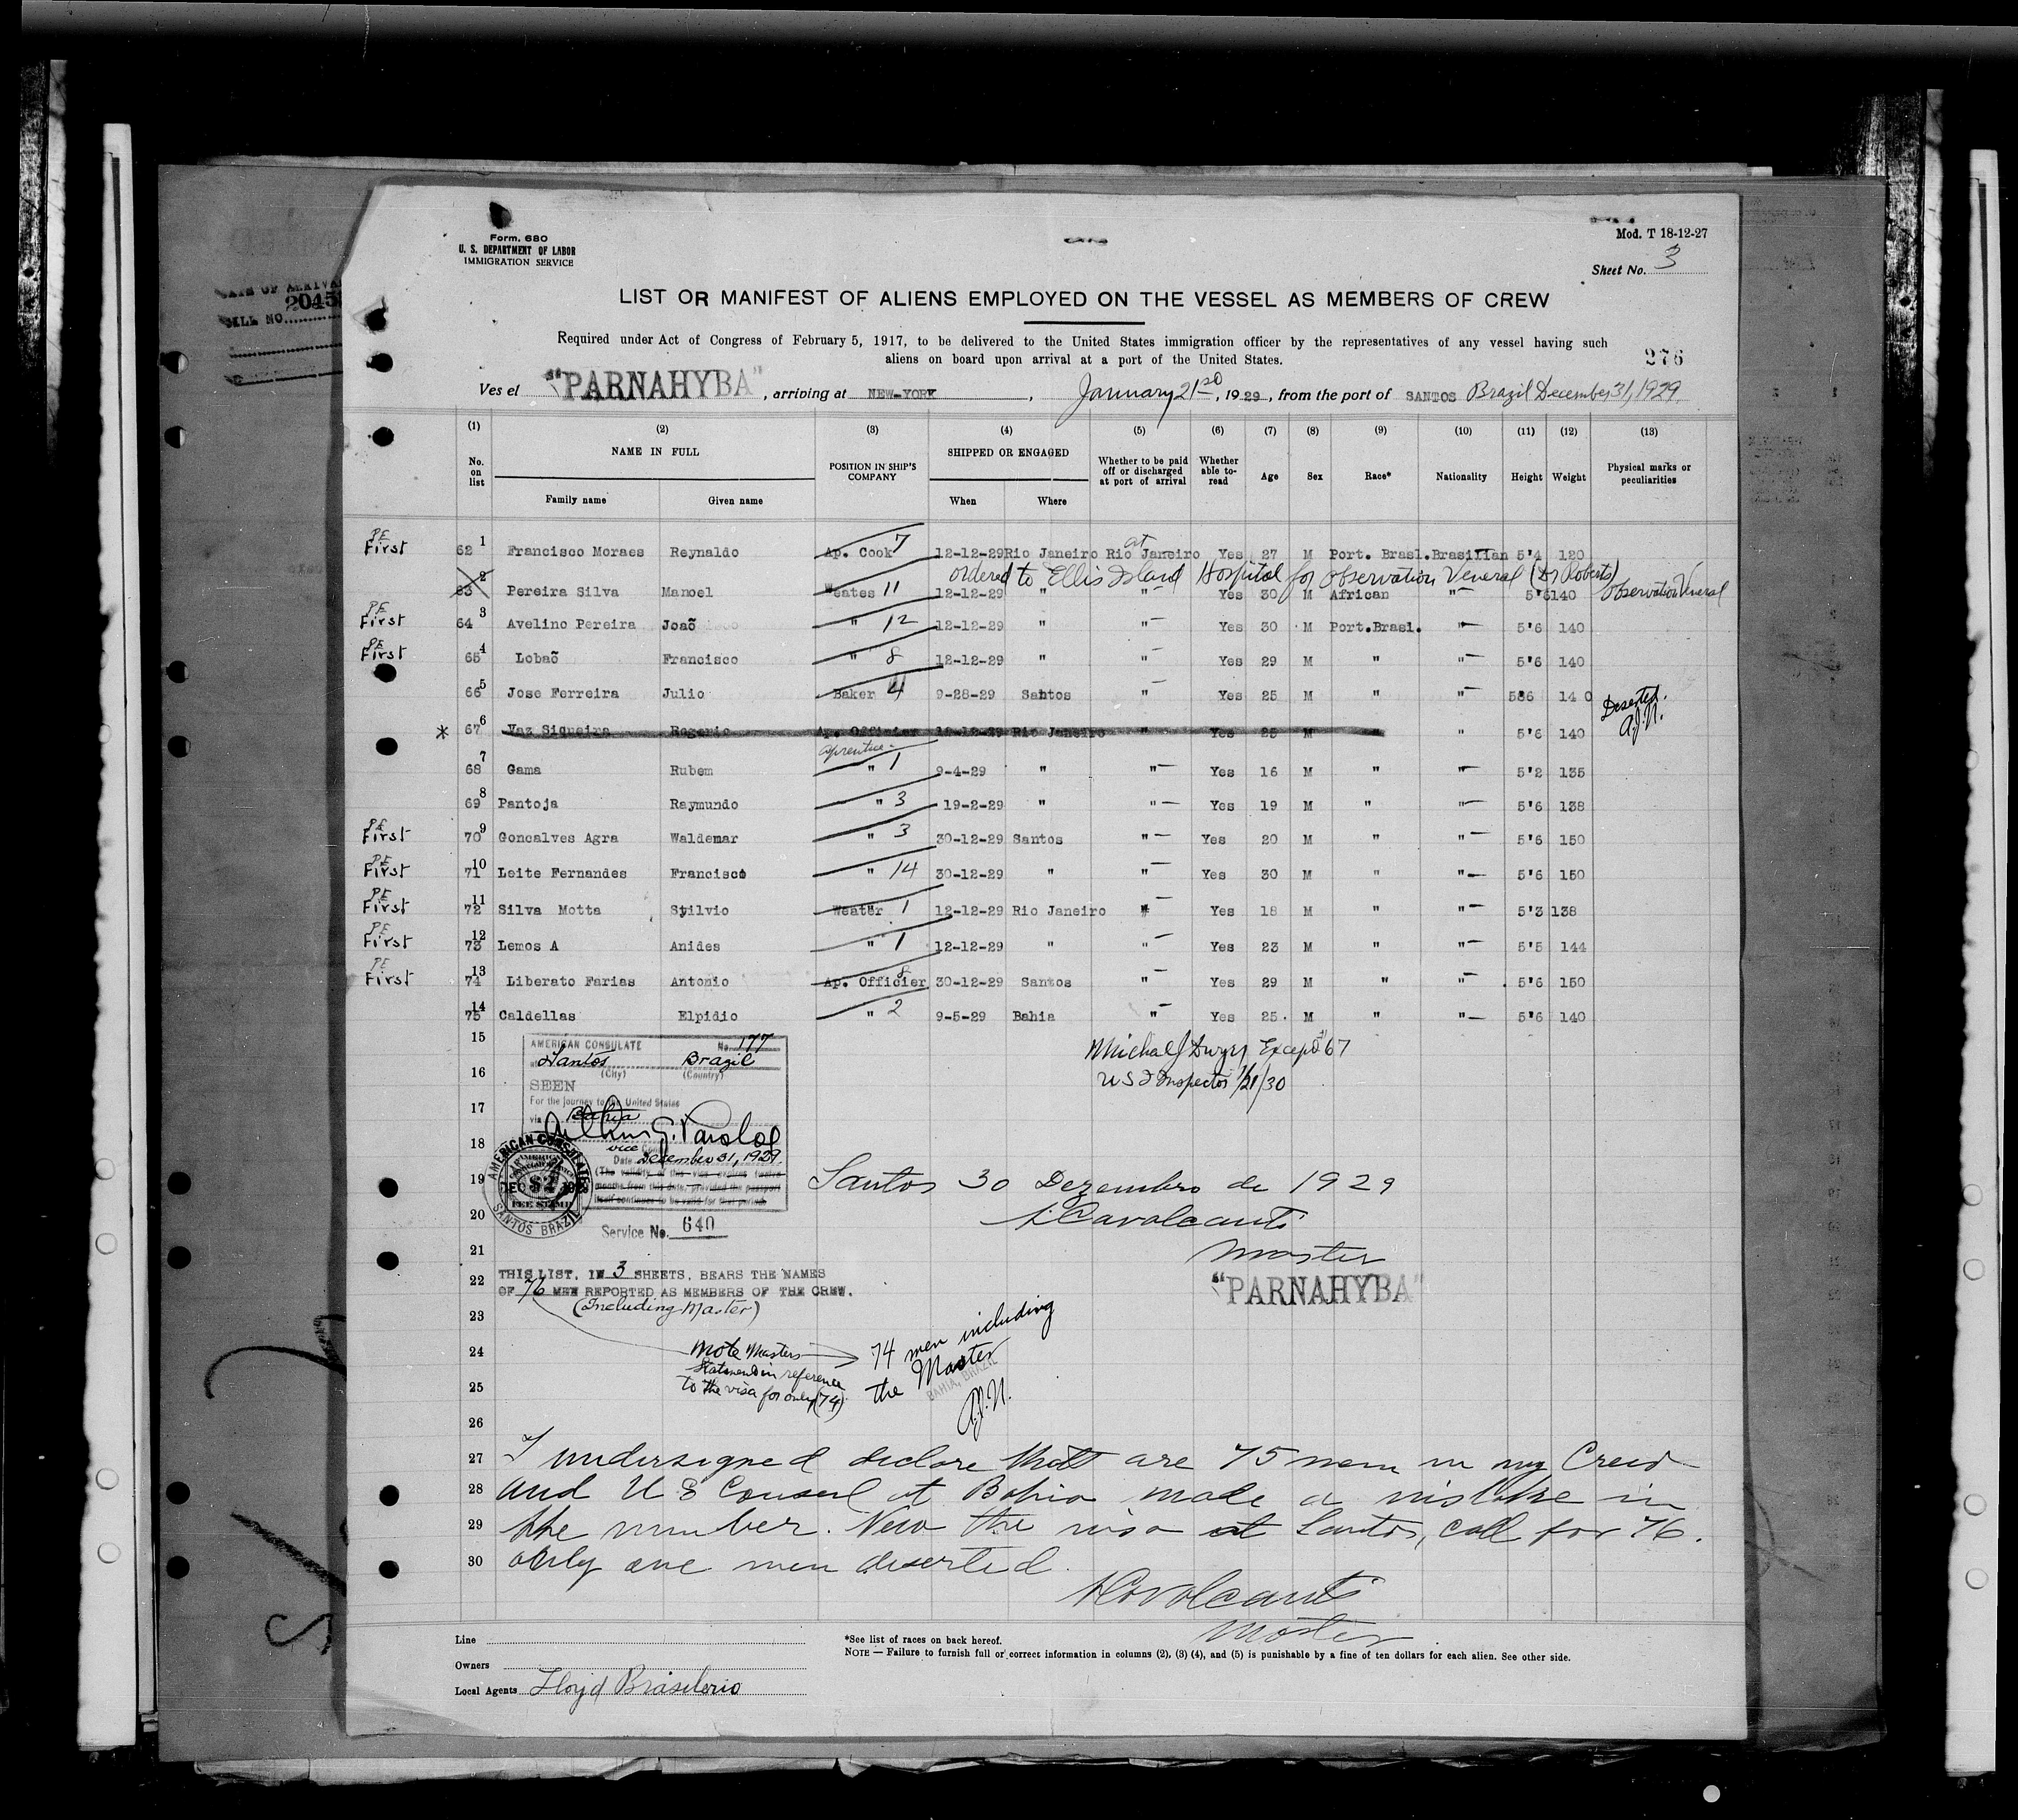 Form. 680
U. S. DEPARTMENT OF LABOR
IMMIGRATION SERVICE
Mod. T 18-12-27
Sheet No. 3
2045
LIST OR MANIFEST OF ALIENS EMPLOYED ON THE VESSEL AS MEMBERS OF CREW
Required under Act of Congress of February 5, 1917, to be delivered to the United States immigration officer by the representatives of any vessel having such
aliens on board upon arrival at a port of the United States.
276
Ves el "PARNAHYBA", arriving at NEW-YORK, January 21st, 1929, from the port of SANTOS Brazil December 31, 1929
(1) (2) (3) (4) (5) (6) (7) (8) (9) (10) (11) (12) (13)
No. on list NAME IN FULL Family name Given name POSITION IN SHIP'S COMPANY SHIPPED OR ENGAGED When Where Whether to be paid off or discharged at port of arrival Whether able to-read Age Sex Race* Nationality Height Weight Physical marks or peculiarities
PE First 62 1 Francisco Moraes Reynaldo Ap. Cook 7 12-12-29 Rio Janeiro at Rio Janeiro Yes 27 M Port. Brasl. Brasilian 5'4 120
ordered to Ellis Island Hospital for observation Veneral (Dr Roberts)
63 2 Pereira Silva Manoel Weates 11 12-12-29 " "— Yes 30 M African "— 5'6 140 Observation Veneral
PE First 64 3 Avelino Pereira Joaõ " 12 12-12-29 " "— Yes 30 M Port.Brasl. "— 5'6 140
PE First 65 4 Lobaõ Francisco " 8 12-12-29 " "— Yes 29 M " "— 5'6 140
66 5 Jose Ferreira Julio Baker 4 9-28-29 Santos " Yes 25 M " "— 586 14 0
* 67 6 Vaz Siqueira Rogerio Ap. Officier 12-12-29 Rio Janeiro " Yes 25 M " " 5'6 140 Deserted. A.J.N.
aprentice
68 7 Gama Rubem " 1 9-4-29 " "— Yes 16 M " "— 5'2 135
69 8 Pantoja Raymundo " 3 19-2-29 " "— Yes 19 M " "— 5'6 138
PE First 70 9 Goncalves Agra Waldemar " 3 30-12-29 Santos "— Yes 20 M " "— 5'6 150
PE First 71 10 Leite Fernandes Francisco " 14 30-12-29 " "— Yes 30 M " "— 5'6 150
PE First 72 11 Silva Motta Sylvio Weater 1 12-12-29 Rio Janeiro "— Yes 18 M " "— 5'3 138
PE First 73 12 Lemos A Anides " 1 12-12-29 " "— Yes 23 M " "— 5'5 144
PE First 74 13 Liberato Farias Antonio Ap. Officier 8 30-12-29 Santos "— Yes 29 M " "— 5'6 150
75 14 Caldellas Elpidio " 2 9-5-29 Bahia "— Yes 25 M " "— 5'6 140
15
16
17
18
19
20
21
22
23
24
25
26
AMERICAN CONSULATE No. 177
at Santos Brazil
(City) (Country)
SEEN
For the journey to the United States
via Bahia
vice
Date December 31, 1929.
(The validity of this visa expires twelve
months from this date, provided the passport
itself continues to be valid for that period.
AMERICAN CONSULATE
SANTOS BRAZIL
$2
FEE STAMP
Service No. 640
Michael J Dwyer Except 67
U S I Inspector 1/21/30
Santos 30 Dezembro de 1929
Cavalcanti
Master
"PARNAHYBA"
THIS LIST, IN 3 SHEETS, BEARS THE NAMES
OF 76 MEN REPORTED AS MEMBERS OF THE CREW.
(Including Master)
Note Masters
Statement in reference
to the visa for only (74)
74 men including
the Master
BAHIA, BRAZIL
A.J.N.
27 I undersigned declare that are 75 men in my Crew
28 and U S Consul at Bahia made a mistake in
29 the number. New the visa at Santos, call for 76.
30 only one men deserted.
Cavalcanti
Master
Line
Owners
Local Agents Lloyd Brasileiro
*See list of races on back hereof.
NOTE — Failure to furnish full or correct information in columns (2), (3) (4), and (5) is punishable by a fine of ten dollars for each alien. See other side.